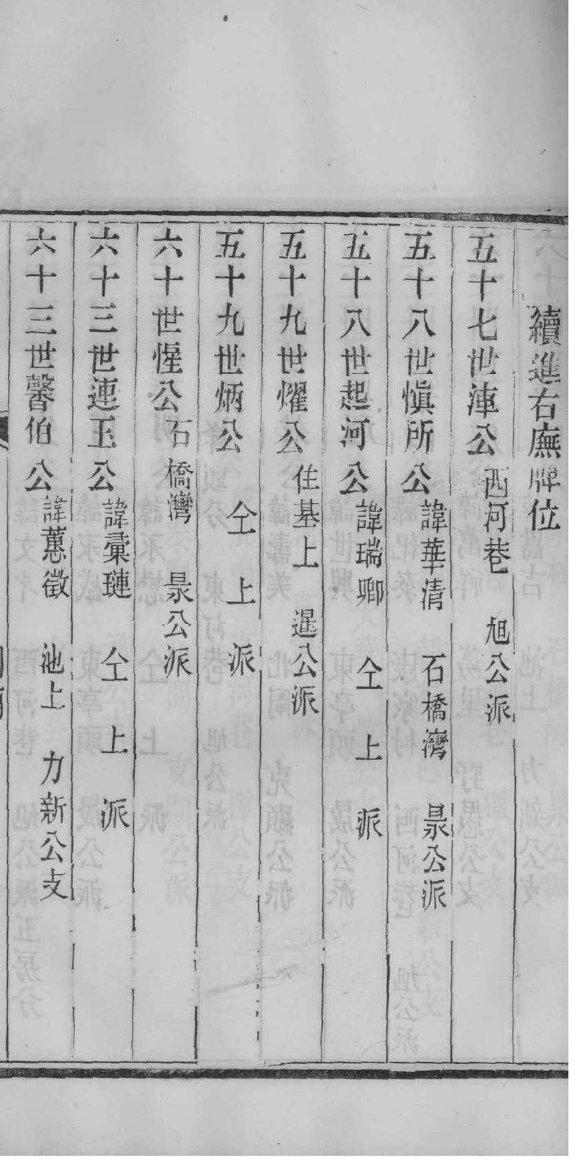 續進右廡牌位
五十七世渾公 西河巷 旭公派
五十八世愼所公 諱華清 石橋灣 㬎公派
五十八世起河公 諱瑞卿 仝上派
五十九世燿公 住基上 暹公派
五十九世炳公 仝上派
六十世惺公 石橋灣 㬎公派
六十三世連玉公 諱彙璉 仝上派
六十三世馨伯公 諱蕙徵 池上 力新公支